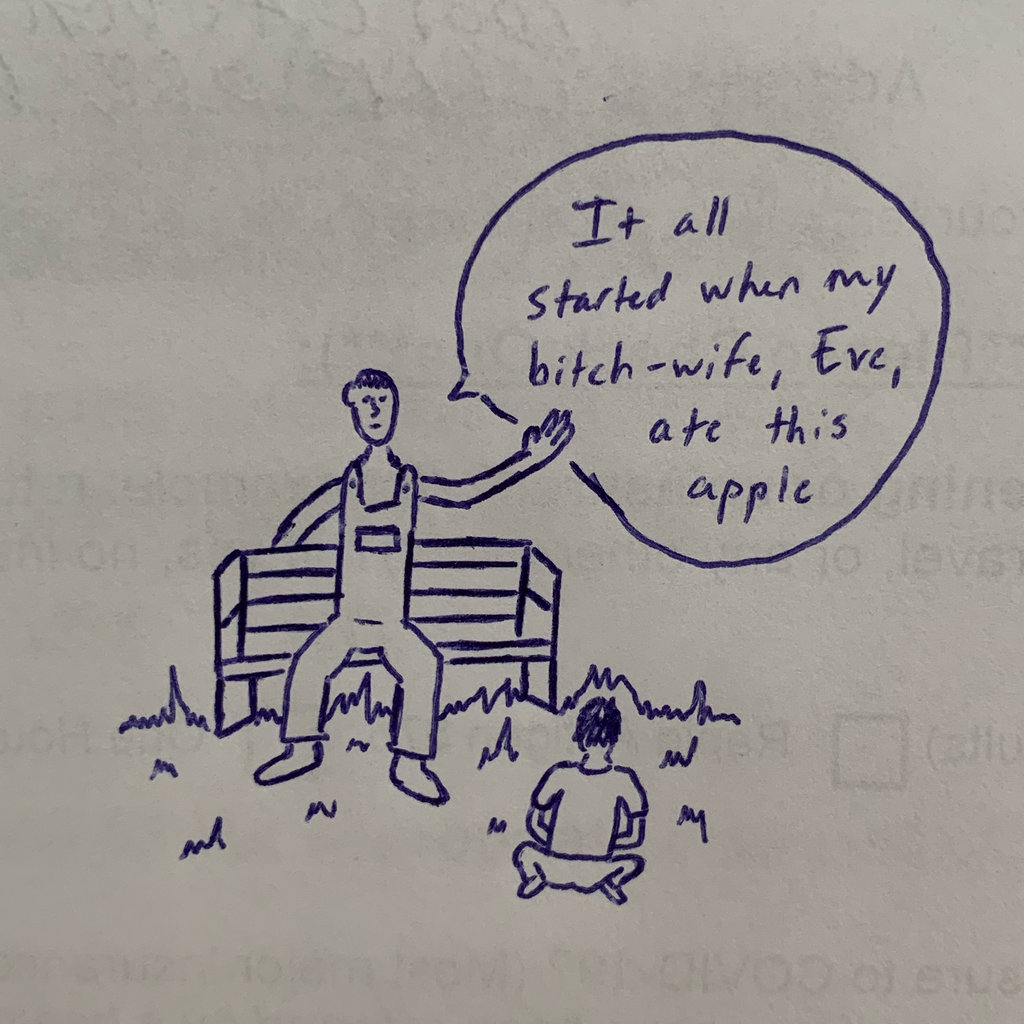 It all
started when my
bitch-wife, Eve,
ate this
apple